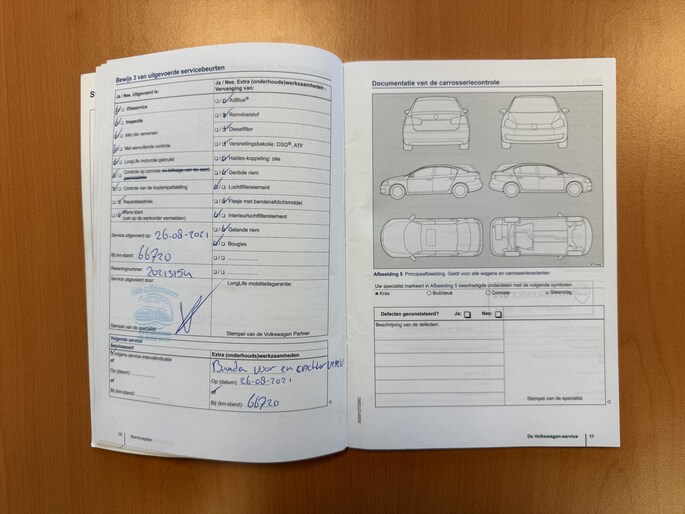 Bewijs 3 van uitgevoerde servicebeurten
Ja / Nee. Uitgevoerd is:
Olieservice
Inspectie
Met olie verversen
Met aanvullende controle
LongLife motorolie gebruikt
Controle op corrosie
Controle van de koplampafstelling
Reparatieadvies
Wens klant
(ook op de werkorder vermelden)
Service uitgevoerd op: 26-08-2021
Bij km-stand: 66720
Rekeningnummer:
Service uitgevoerd door:
Stempel van de specialist
Ja / Nee. Extra (onderhouds)werkzaamheden -
Vervanging van:
AdBlue®
Remvloeistof
Dieselfilter
Versnellingsbakolie: DSG®, ATF
Haldex-koppeling: olie
Geribde riem
Luchtfilterelement
Flesje met bandenafdichtmiddel
Interieurluchtfilterelement
Getande riem
Bougies
LongLife mobiliteitsgarantie:
Stempel van de Volkswagen Partner
Volgende service
Servicesoort
Volgens service-intervalindicatie
of
Op (datum):
of
Bij (km-stand):
Extra (onderhouds)werkzaamheden
Banden voor en achter
Op (datum): 26-08-2021
of
Bij (km-stand): 66720
10
Serviceplan
Documentatie van de carrosseriecontrole
Afbeelding 5 Principeafbeelding: Geldt voor alle wagens en carrosserievarianten
Uw specialist markeert in Afbeelding 5 beschadigde onderdelen met de volgende symbolen:
Kras Buil/deuk Corrosie Steenslag
Defecten geconstateerd? Ja: Nee:
Beschrijving van de defecten:
Stempel van de specialist
De Volkswagen-service 11